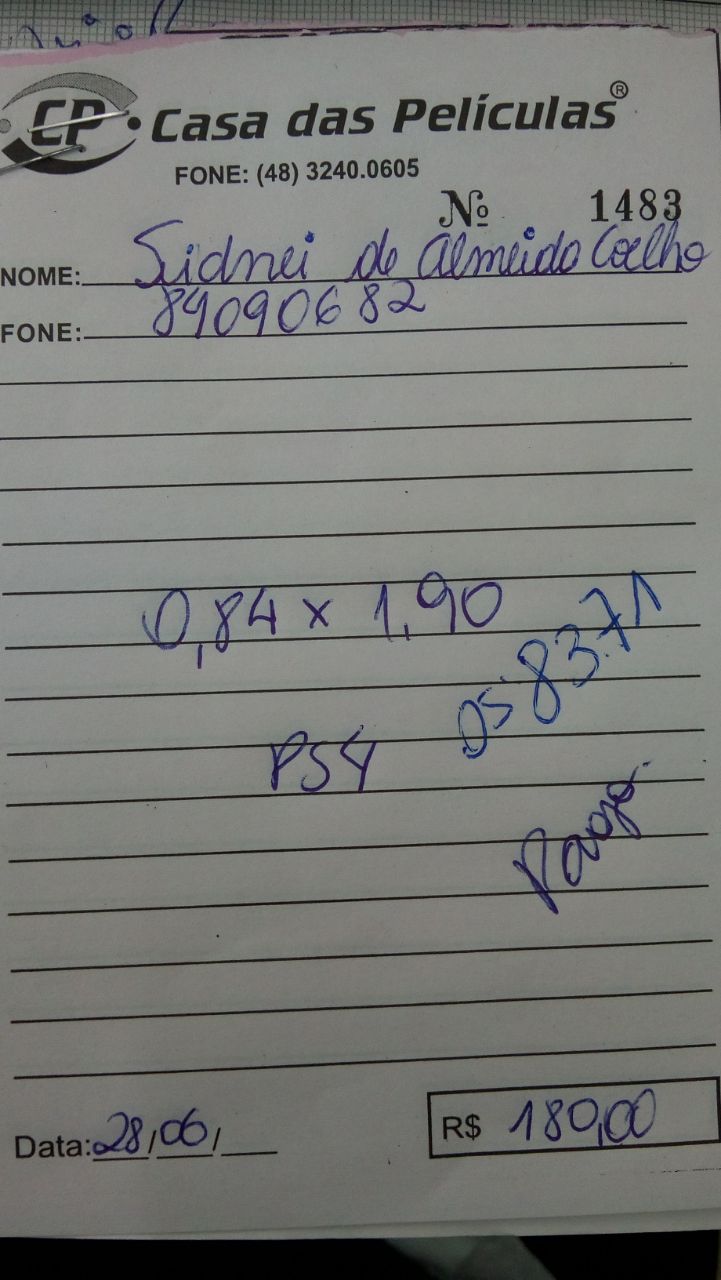 CP Casa das Películas®
FONE: (48) 3240.0605
Nº 1483
NOME: Sidnei de Almeida Coelho
FONE: 84090682
0,84 x 1,90
OS 8371
PS4
Data: 28/06/
R$ 180,00